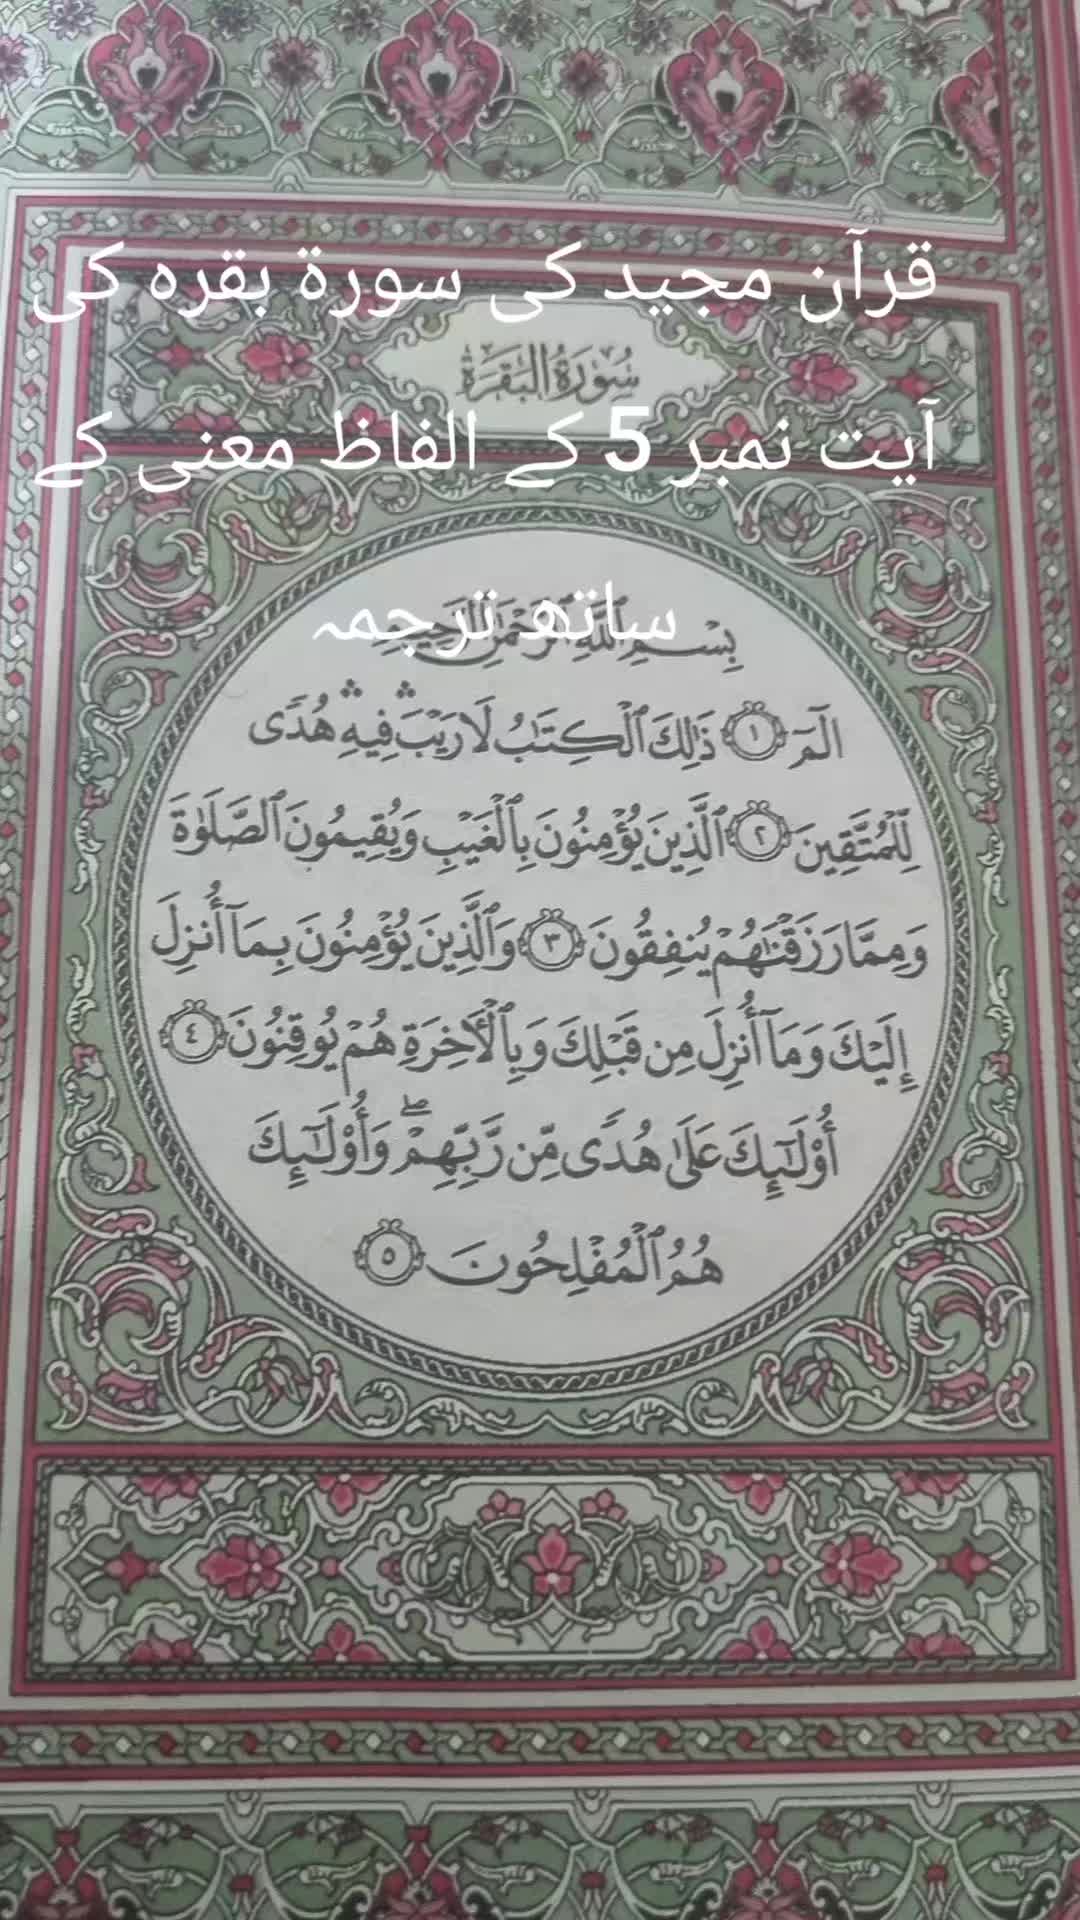 قرآن مجید کی سورۃ بقرہ کی
سُورَةُ البَقَرَةِ
آیت نمبر 5 کے الفاظ معنی کے
ساتھ ترجمہ
بِسْمِ ٱللَّهِ ٱلرَّحْمَٰنِ ٱلرَّحِيمِ
الٓمٓ ١ ذَٰلِكَ ٱلْكِتَٰبُ لَا رَيْبَۛ فِيهِۛ هُدًى
لِّلْمُتَّقِينَ ٢ ٱلَّذِينَ يُؤْمِنُونَ بِٱلْغَيْبِ وَيُقِيمُونَ ٱلصَّلَوٰةَ
وَمِمَّا رَزَقْنَٰهُمْ يُنفِقُونَ ٣ وَٱلَّذِينَ يُؤْمِنُونَ بِمَآ أُنزِلَ
إِلَيْكَ وَمَآ أُنزِلَ مِن قَبْلِكَ وَبِٱلْأَخِرَةِ هُمْ يُوقِنُونَ ٤
أُو۟لَٰٓئِكَ عَلَىٰ هُدًى مِّن رَّبِّهِمْۖ وَأُو۟لَٰٓئِكَ
هُمُ ٱلْمُفْلِحُونَ ٥